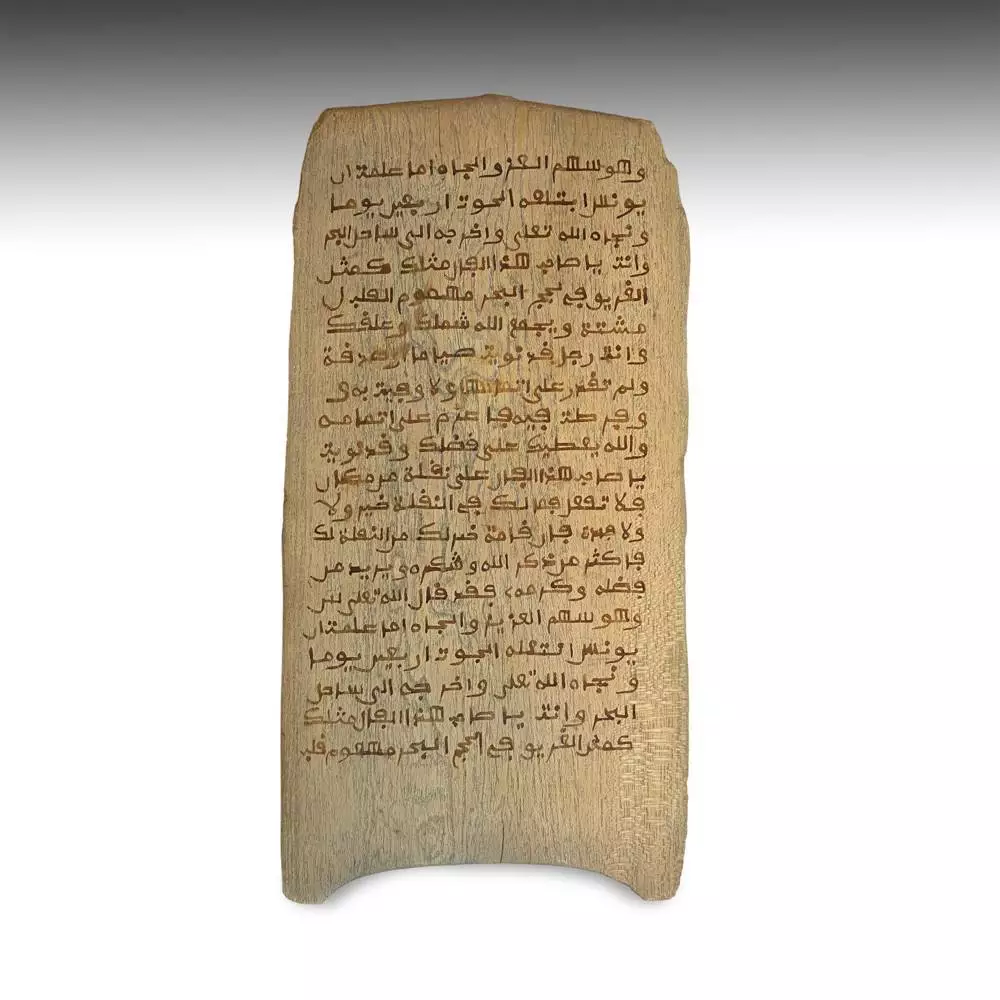 وهو سهم العز والجاه اما علمت ان
يونس ابتلعه الحوت اربعين يوما
ونجاه الله تعلى واخرجه الى ساحل البحر
وانت يا صاحب هذا الفال مثلك كمثل
الغريق في لجج البحر مهموم القلب
ويجمع الله شملك
وانت رجل قد نويت صياما او صدقة
ولم تقدر على ولا وفيت به
وفرطت فيه فاعزم على اتمامه
والله يعطيك على فضلك وقد نويت
يا صاحب هذا الفال على نقلة من مكان
فلا تفعل فما لك في النقلة خير ولا
ولا فان قامة خير لك من النقلة لك
فاكثر من ذكر الله وشكره يزيد من
فضله وكرمه فقد قال الله تعلى
وهو سهم العزيز والجاه اما علمت ان
يونس انتعله الحوت اربعين يوما
ونجاه الله تعلى واخرجه الى ساحل
البحر وانت يا صاحب هذا الفال مثلك
كمثل الغريق في البحر مهموم